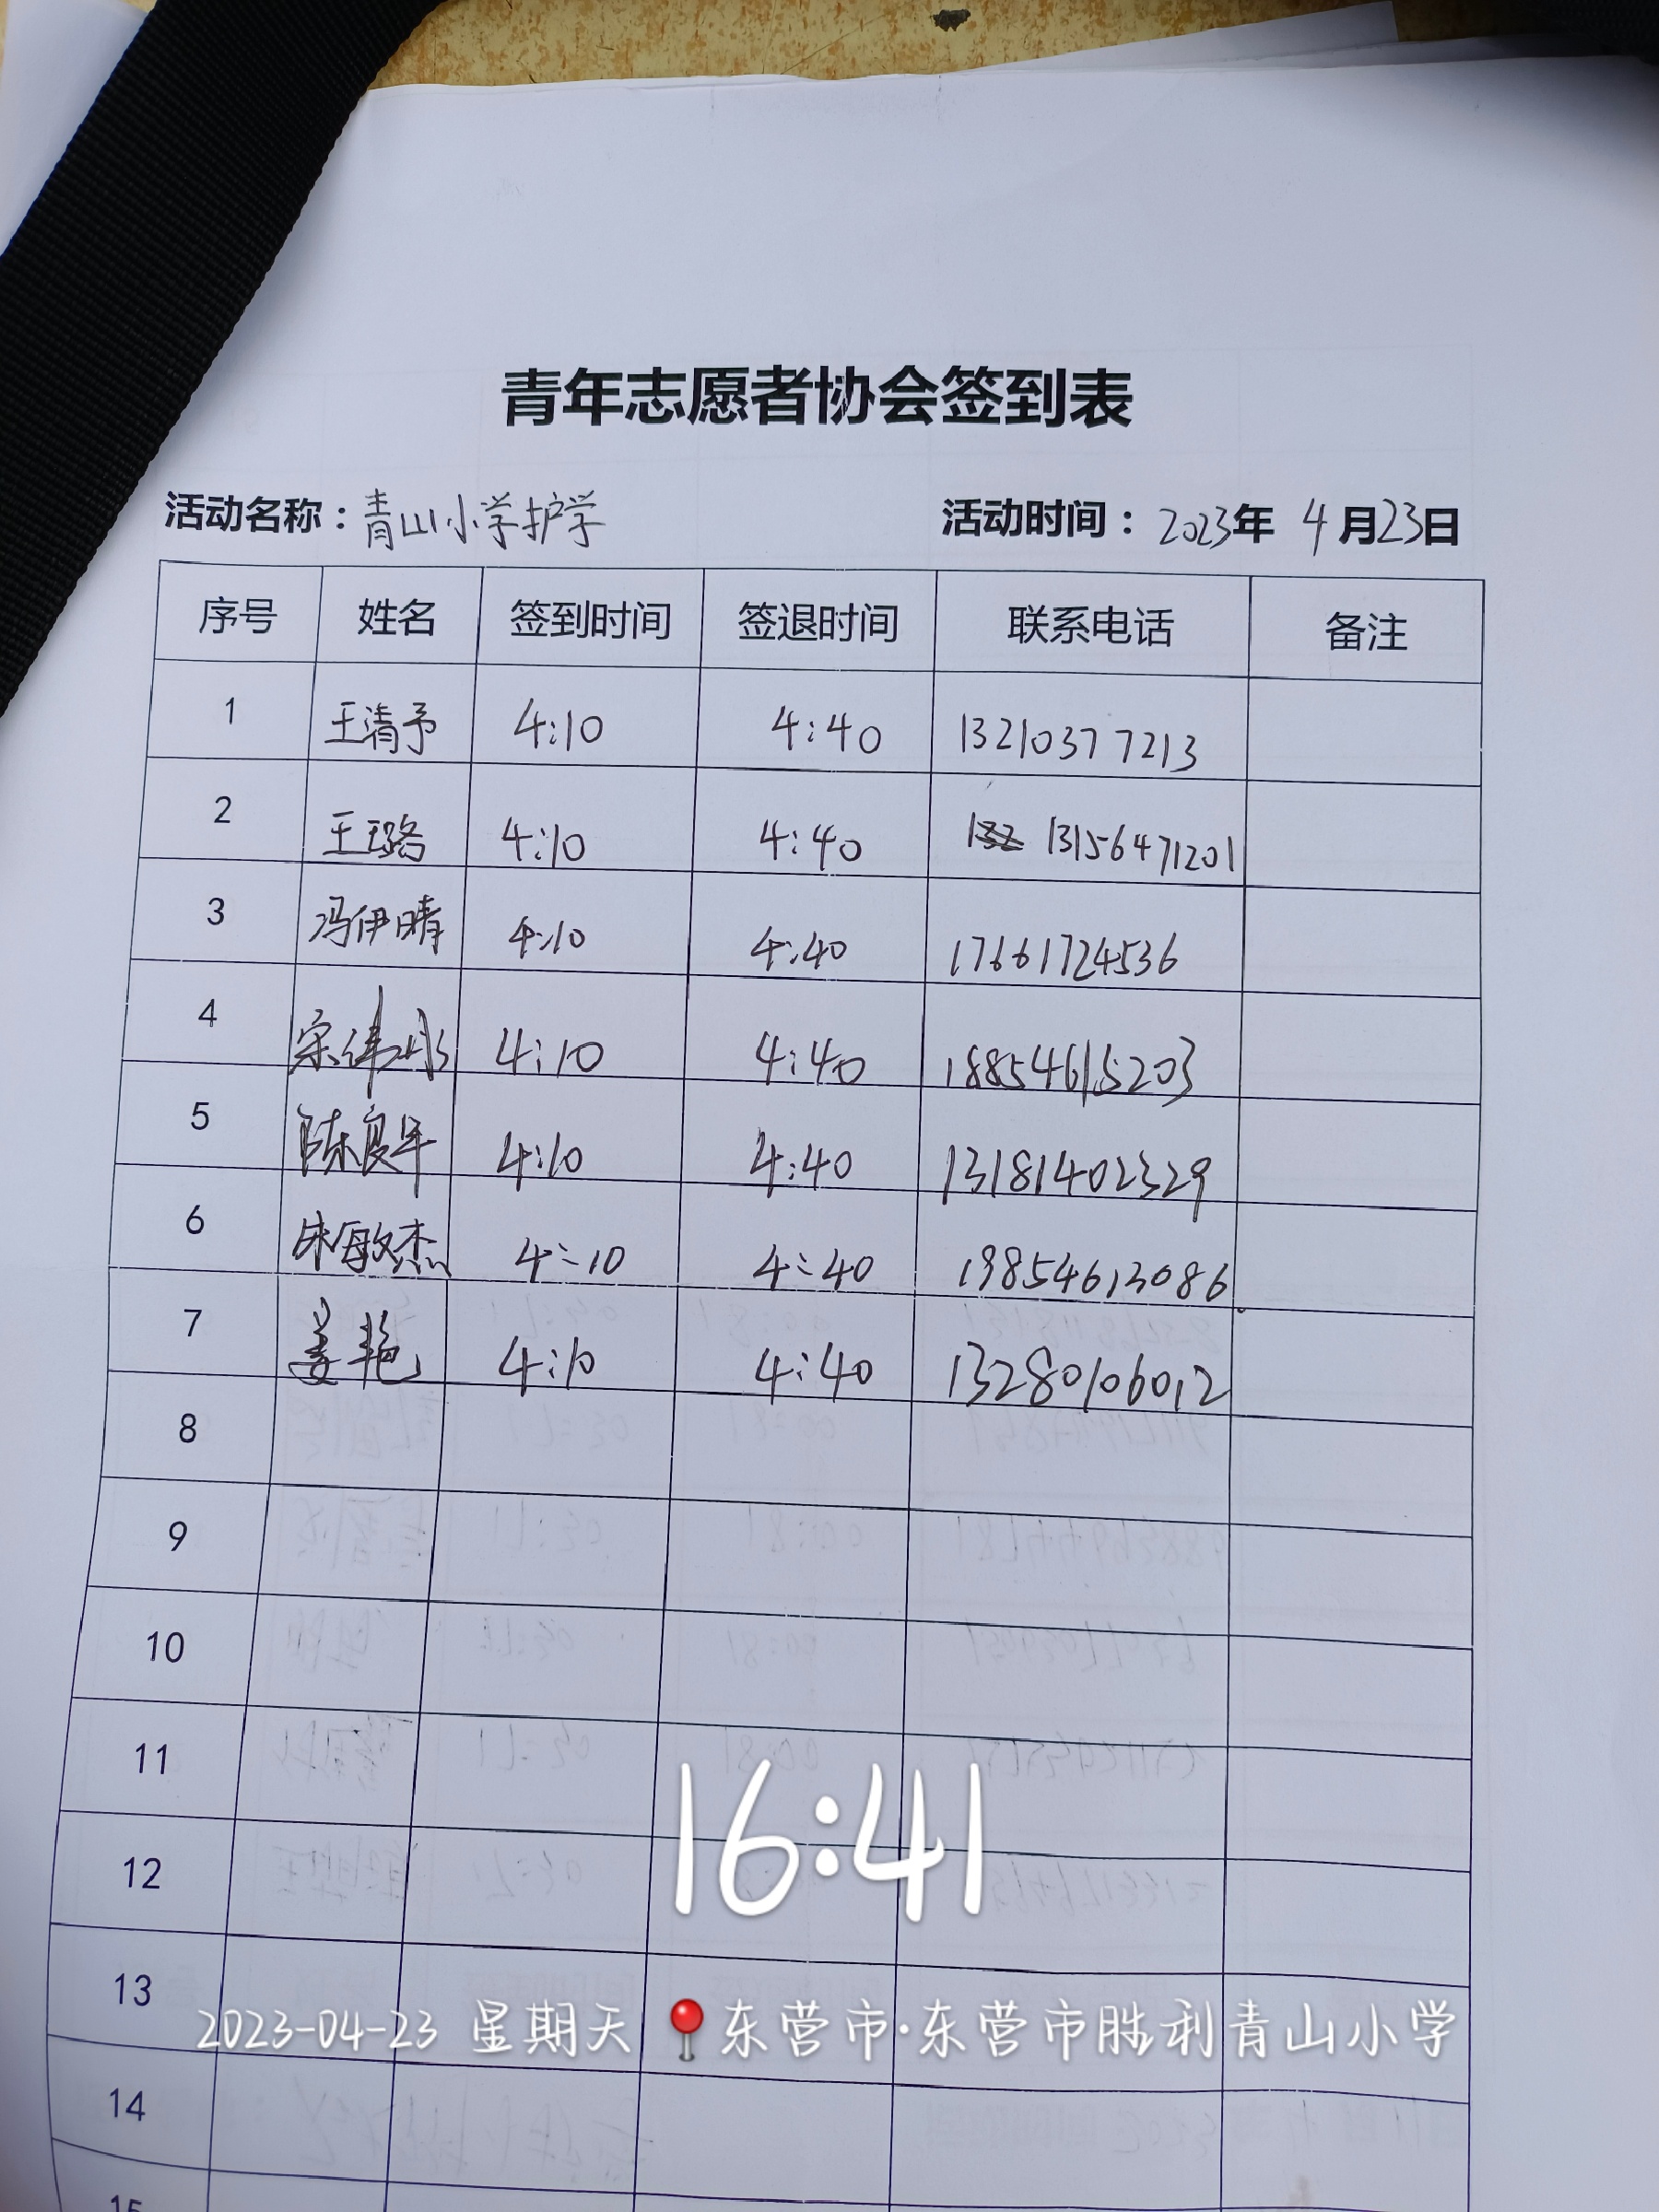 青年志愿者协会签到表
活动名称：青山小学护学 活动时间：2023年 4月23日
序号 姓名 签到时间 签退时间 联系电话 备注
1 王清予 4:10 4:40 13210377213
2 王璐 4:10 4:40 13156471201
3 冯伊晴 4:10 4:40 17661724536
4 宋伟彤 4:10 4:40 18854615203
5 陈良年 4:10 4:40 13181402329
6 朱敏杰 4:10 4:40 19854613086
7 姜艳 4:10 4:40 13280106012
8
9
10
11
16:41
12
13
2023-04-23 星期天 东营市·东营市胜利青山小学
14
15